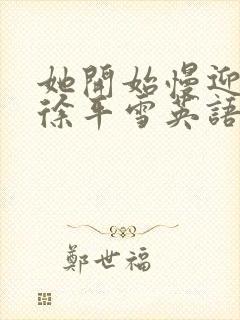 她開始慢迎
徐平雪英語
鄭世福